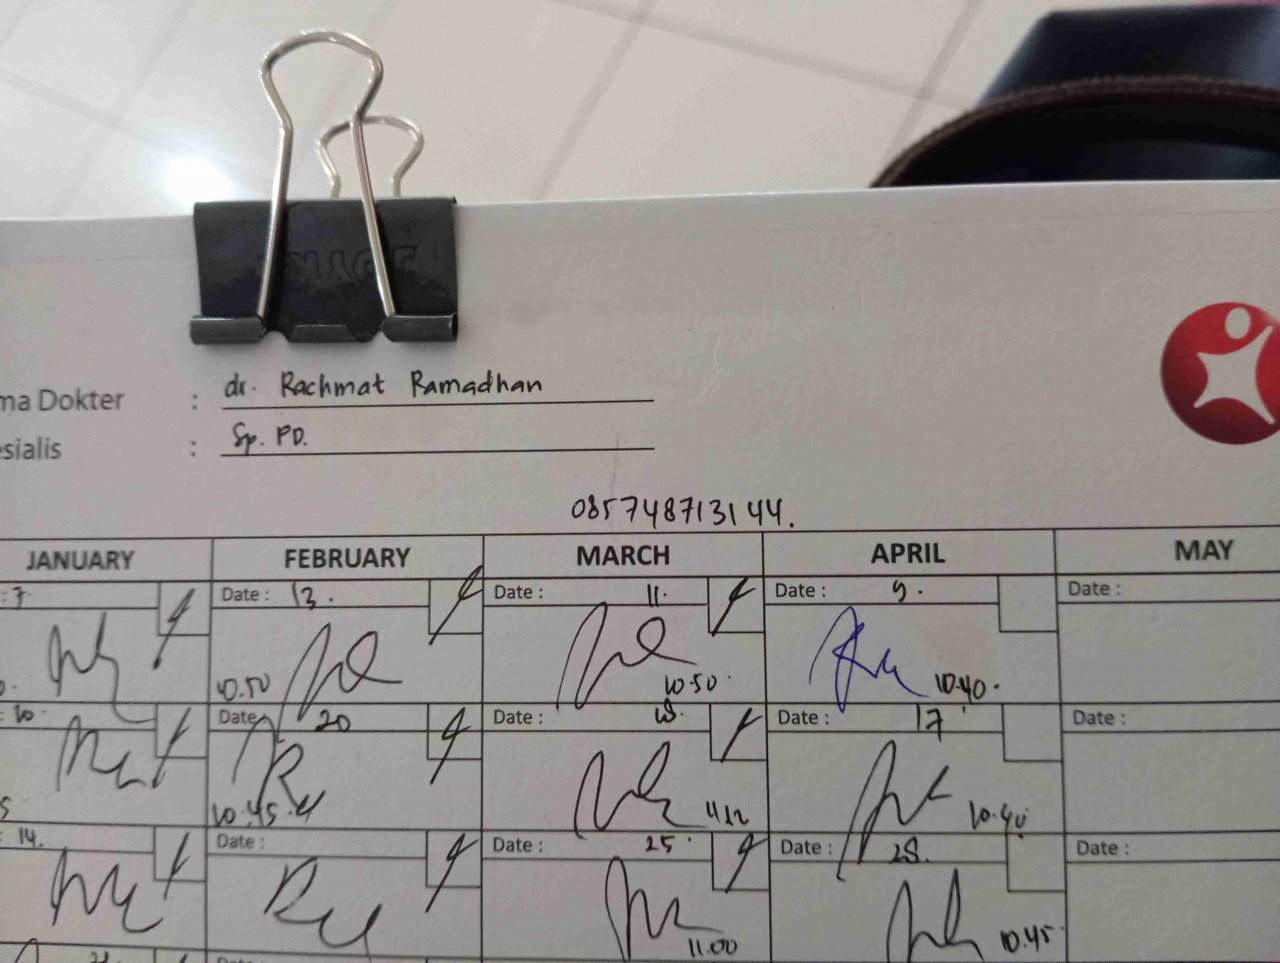 ma Dokter : dr. Rachmat Ramadhan
esialis : Sp. PD.
085748713144.
JANUARY FEBRUARY MARCH APRIL MAY
: 7 Date : 13. Date : 11. Date : 9. Date :
10.50 10.50. 10.40.
: 10. Date 20 Date : 18. Date : 17 Date :
5 10.45 11.12 10.40
: 14. Date : Date : 25. Date : 28. Date :
11.00 10.45